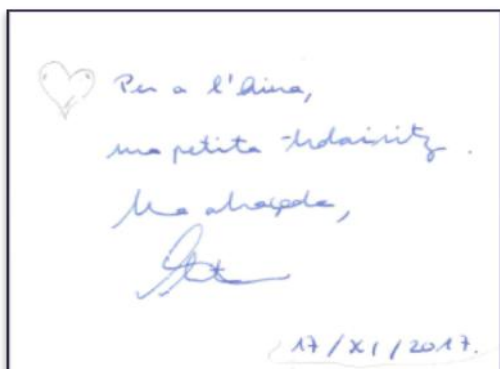 Per a l'Aina,
una petita
Una abraçada,
17/XI/2017.